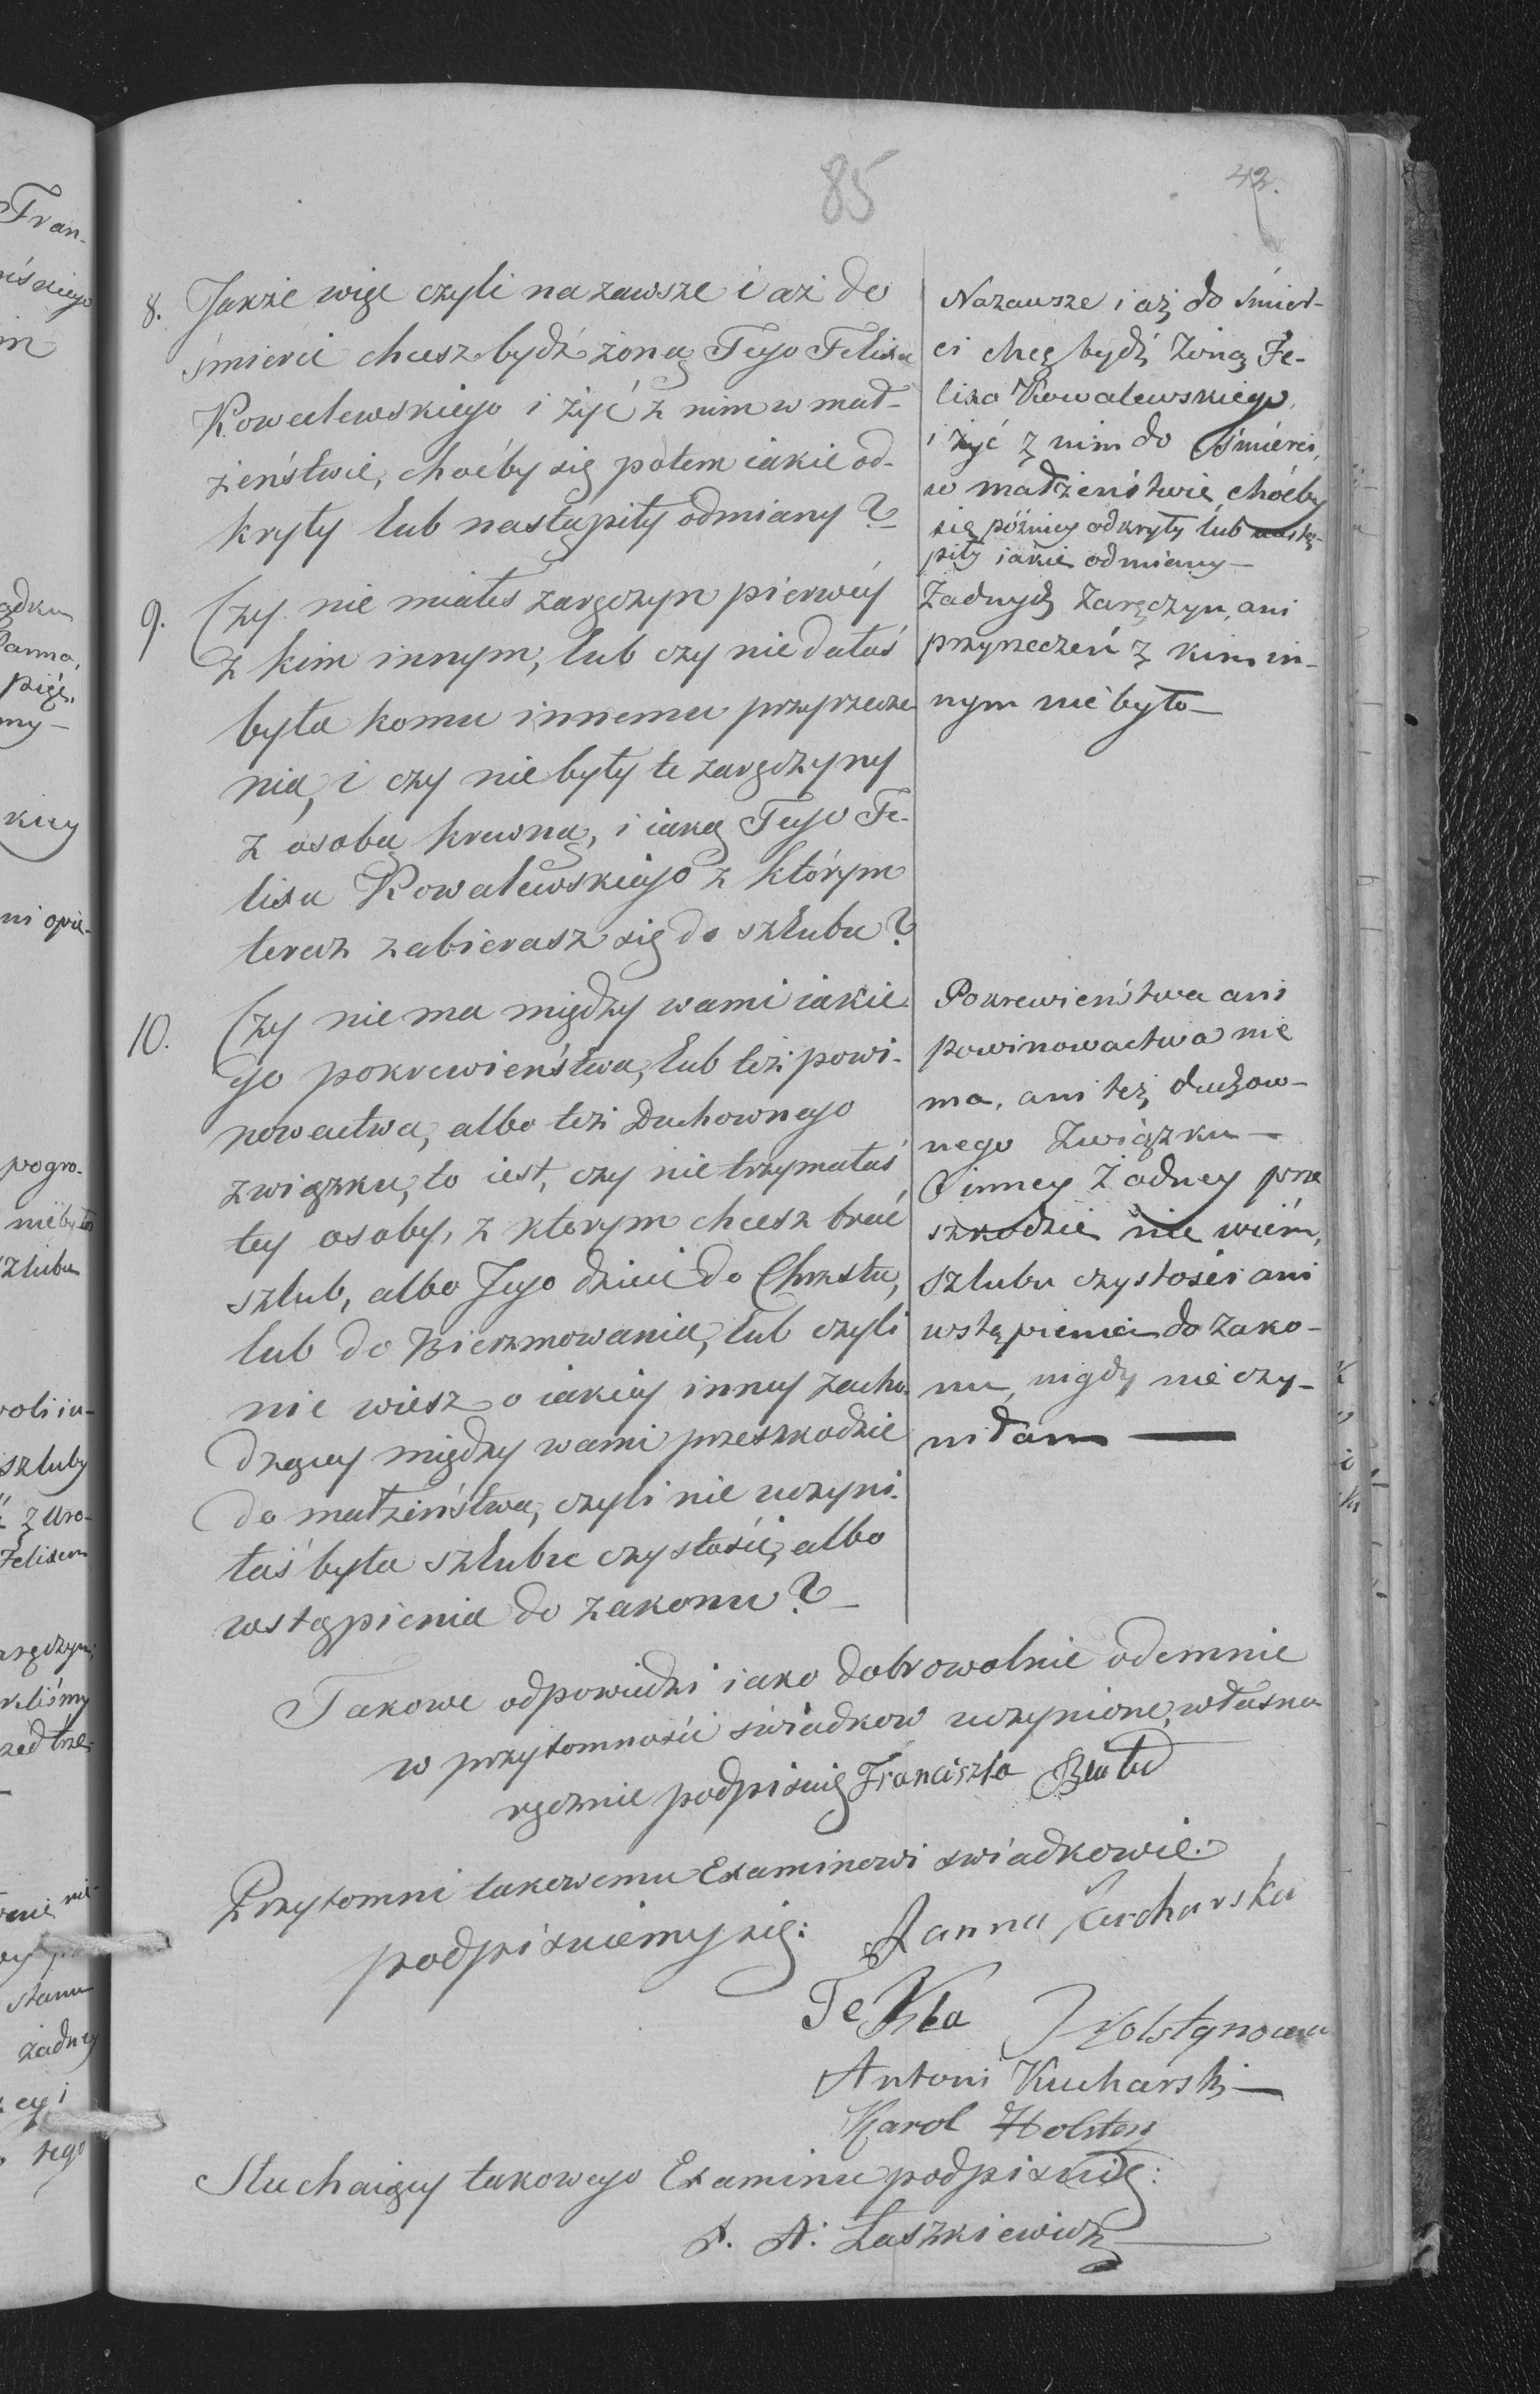 85
42.
8. Jakże więc czyli na zawsze i aż do
śmierci chcesz bydź żoną Tego Felixa
Kowalewskiego i żyć z nim w mał-
żeństwie, choćby się potem iakie od-
kryły lub nastąpiły odmiany?
Nazawsze i aż do śmier-
ci chcę bydź Żoną Fe-
lixa Kowalewskiego,
i żyć z nim do śmierci,
w małżeństwie, choćby
się późniey odkryły lub nastą-
piły iakie odmiany —
9. Czy nie miałeś zaręczyn pierwéy
z kim innym, lub czy nie dałaś
była komu innemu przyrzecze
nia, i czy nie były te zaręczyny
z osobą krewną, i iaką Tego Fe-
lixa Kowalewskiego z którym
teraz zabierasz się do szlubu?
Żadnych Zaręczyn, ani
przyrzeczeń z kim in-
nym nie było —
10. Czy nie ma między wami iakie
go pokrewieństwa, lub też powi-
nowactwa, albo też Duchownego
związku, to iest, czy nie trzymałaś
tey osoby, z ktorym chcesz brać
szlub, albo Jego dzieci do Chrztu,
lub do Bierzmowania, lub czyli
nie wiesz o iakiey inney zacho-
dzącey między wami przeszkodzie
do małżeństwa, czyli nie uczyni-
łaś była szlubu czystości, albo
wstąpienia do zakonu? —
Pokrewieństwa ani
powinowactwa nie
ma, ani też duchow-
nego Związku —
O inney Żadney prze
szkodzie nie wiém,
szlubu czystości ani
wstąpienia do zako-
nu, nigdy nie czy-
niłam —
Takowe odpowiedzi iako dobrowolnie odemnie
w przytomności świadkow uczynione, własno
ręcznie podpisuię Franciszka
Przytomni takowemu Examinowi swiadkowie
podpisuiemy się: Janna Kucharska
Tekla Holstynowa
Antoni Kucharski —
Karol Holsten
Słuchaiący takowego Examinu podpisuię:
X. A. Łaszkiewicz
Fran-
skiego
in
adku
Panna,
pięć,
my —
kiey
ni opie-
pogro-
nie była
szlubu
woli ia-
szluby
z Uro-
Felixem
zaręczyn;
zed trze-
stanu
żadney
cy i
tego